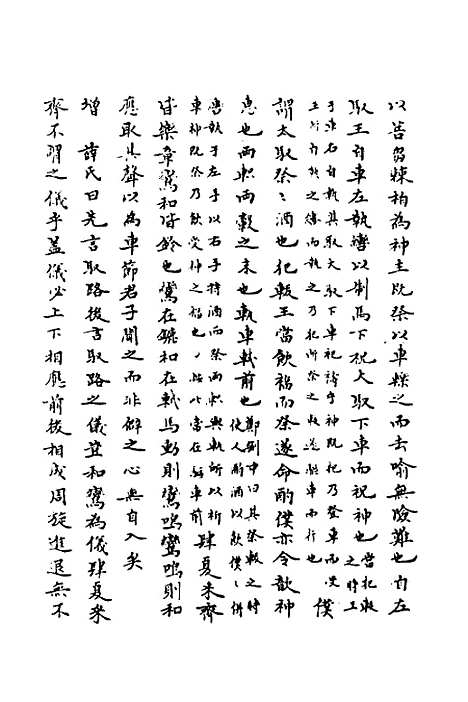 以菩芻棘柏為神主既祭以車轢之而去喻無險難也自左
馭王自車左執轡以制馬下祝大馭下車而祝神也當犯軷
之時王
于車右自執其馭大馭下車祀禱于神既祀乃登車而受
王所自執之轡而執之乃犯所祭之軷遂驅車而行也 僕
謂太馭祭祭酒也犯軷王當飲福而祭遂命酌僕亦令歆神
惠也兩軹兩轂之末也軌車軾前也鄭剛中曰其祭軷之時
使人酌酒以飲僕僕併
轡執于左手以右手持酒而祭兩軹與軌所以祈
車神既祭乃飲受神之福也按此當在驅車前 肆夏采齊
皆樂章鸞和皆鈴也鸞在鑣和在軾馬動則鸞鳴鸞鳴則和
應取其聲以為車節君子聞之而非僻之心無自入矣
增 薛氏曰先言馭路後言馭路之儀豈和鸞為儀肆夏采
齊不謂之儀乎蓋儀必上下相應前後相成周旋進退無不